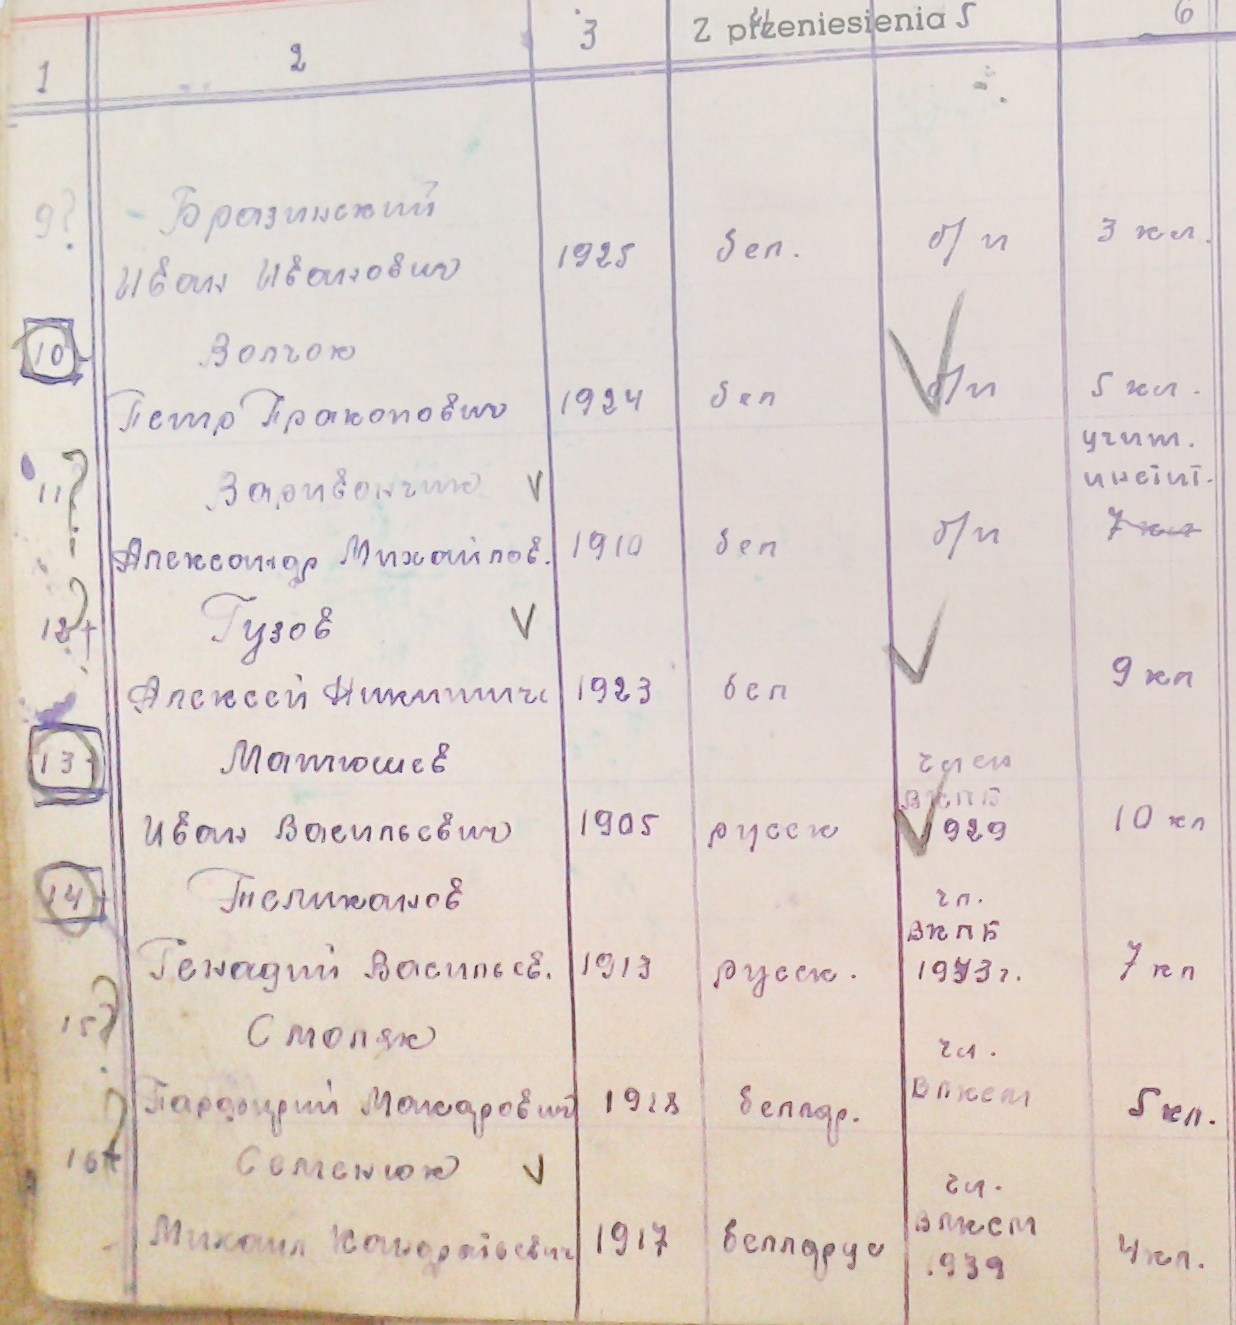 1 2 3 Z przeniesienia 5 6
9?
Бразинский
Иван Иванович 1925 бел. б/п 3 кл.
10
Волчок
Петр Пракопович 1924 бел б/п 5 кл.
учит.
инстит.
11? V
Александр Михайлов. 1910 бел б/п 7 кл
12+ Гузов V
Алексей Никитич 1923 бел 9 кл
13 Матюшев член
ВКПБ
Иван Васильевич 1905 русск 1929 10 кл
14 Теликанов чл.
ВКПБ
Генадий Васильев. 1913 русск. 1943 г. 7 кл
15? Смоляк чл.
Макарович 1928 беллар. ВЛКСМ 5 кл.
16+ Семенюк V чл.
ВЛКСМ
Михаил Кандратьевич 1917 белларус 1939 4 кл.